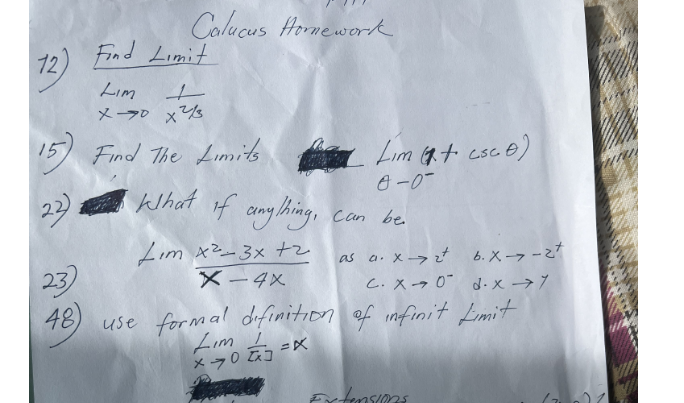 Calucus Homework
12) Find Limit
Lim 1
x→0 x^2/3
15) Find The Limits Lim (1 + csc θ)
θ-0⁻
22) What if anything, can be
Lim x²-3x+2 as a. x→2⁺ b. x→-2⁺
23) x-4x c. x→0⁻ d. x→1
48) use formal difinition of infinit Limit
Lim 1 = ∝
x→0 [x]
Extensions